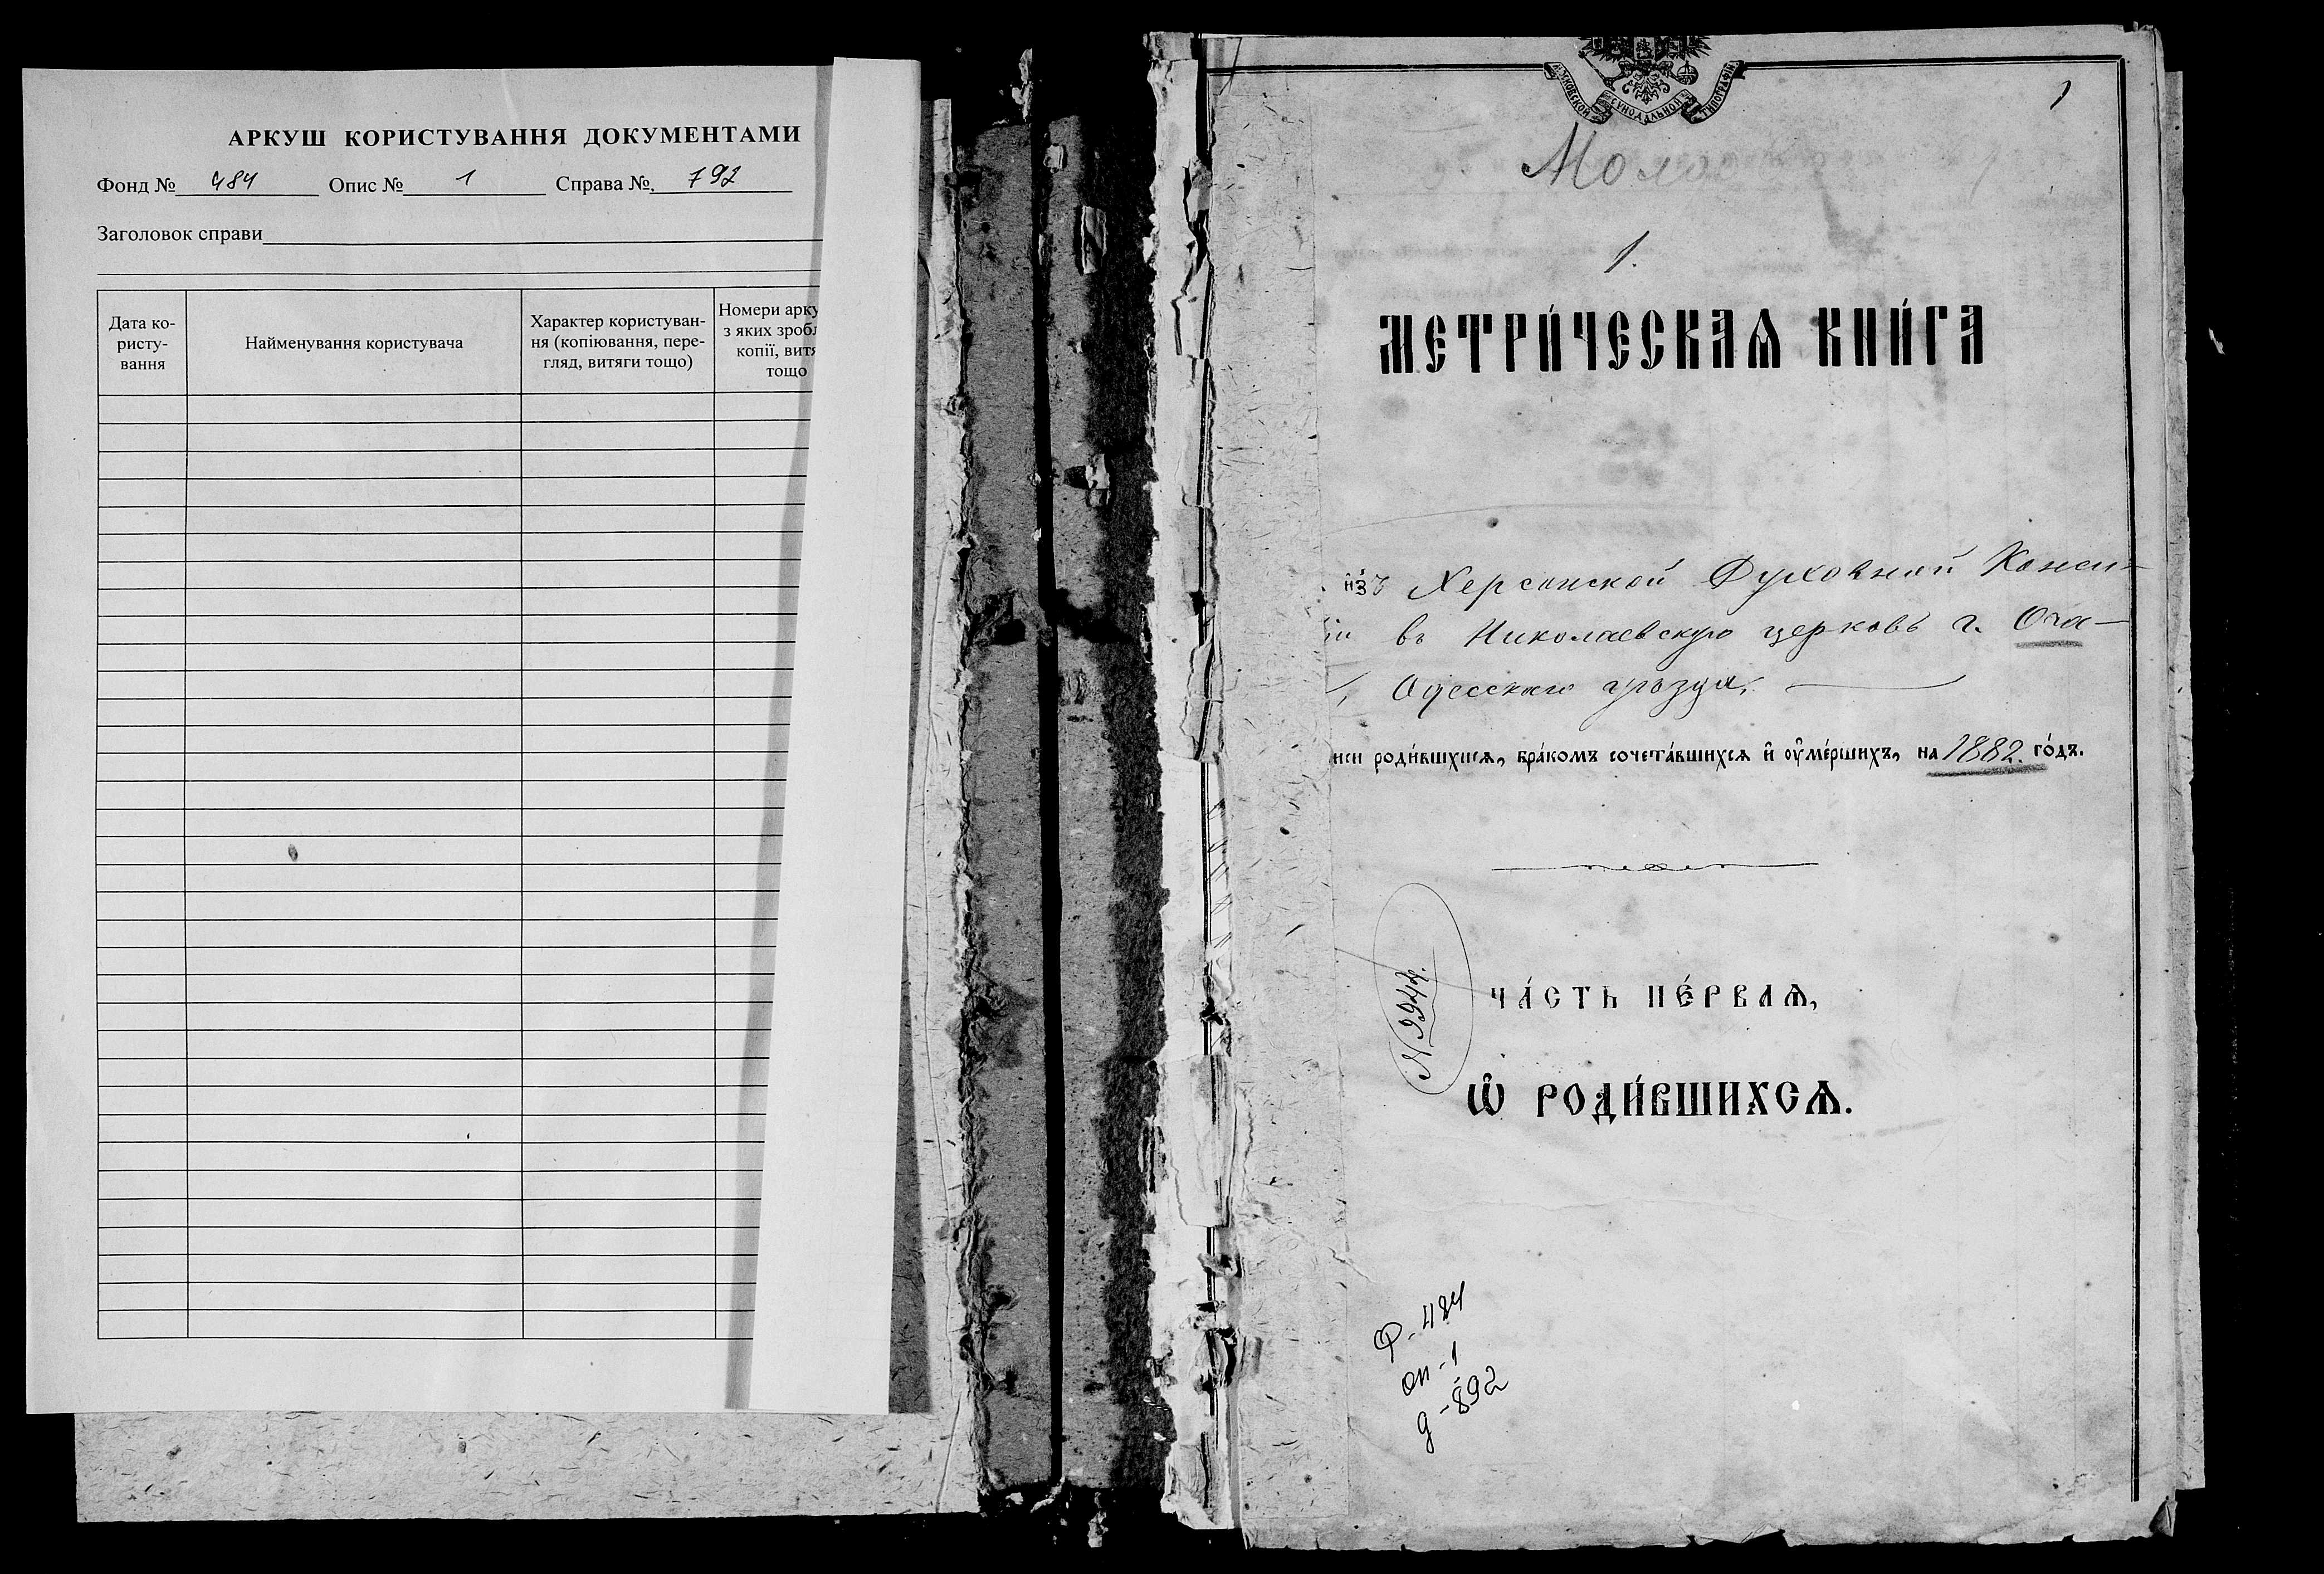 АРКУШ КОРИСТУВАННЯ ДОКУМЕНТАМИ
Фонд № 484 Опис № 1 Справа № 792
Заголовок справи
Дата ко-
ристу-
вання
Найменування користувача
Характер користуван-
ня (копіювання, пере-
гляд, витяги тощо)
Номери арку
з яких зробл
копії, витя
тощо
МОСКОВСКОЙ СѴНОДАЛЬНОЙ ТИПОГРАФІИ
1
1.
МЕТРИ́ЧЕСКАѦ КНИ́ГА
и҆́зъ Херсонской Духовной Конси-
іи въ Николаевскую церковь г. Оча-
Одесскаго уѣзда,
иси роди́вшихсѧ, бра́комъ сочета́вшихсѧ и҆ ᲂу҆ме́ршихъ, на 1882. го́дъ.
№ 9944.
ЧА́СТЬ ПЕ́РВАѦ,
Ѽ РОДИ́ВШИХСѦ.
Ф-484
оп-1
д-892